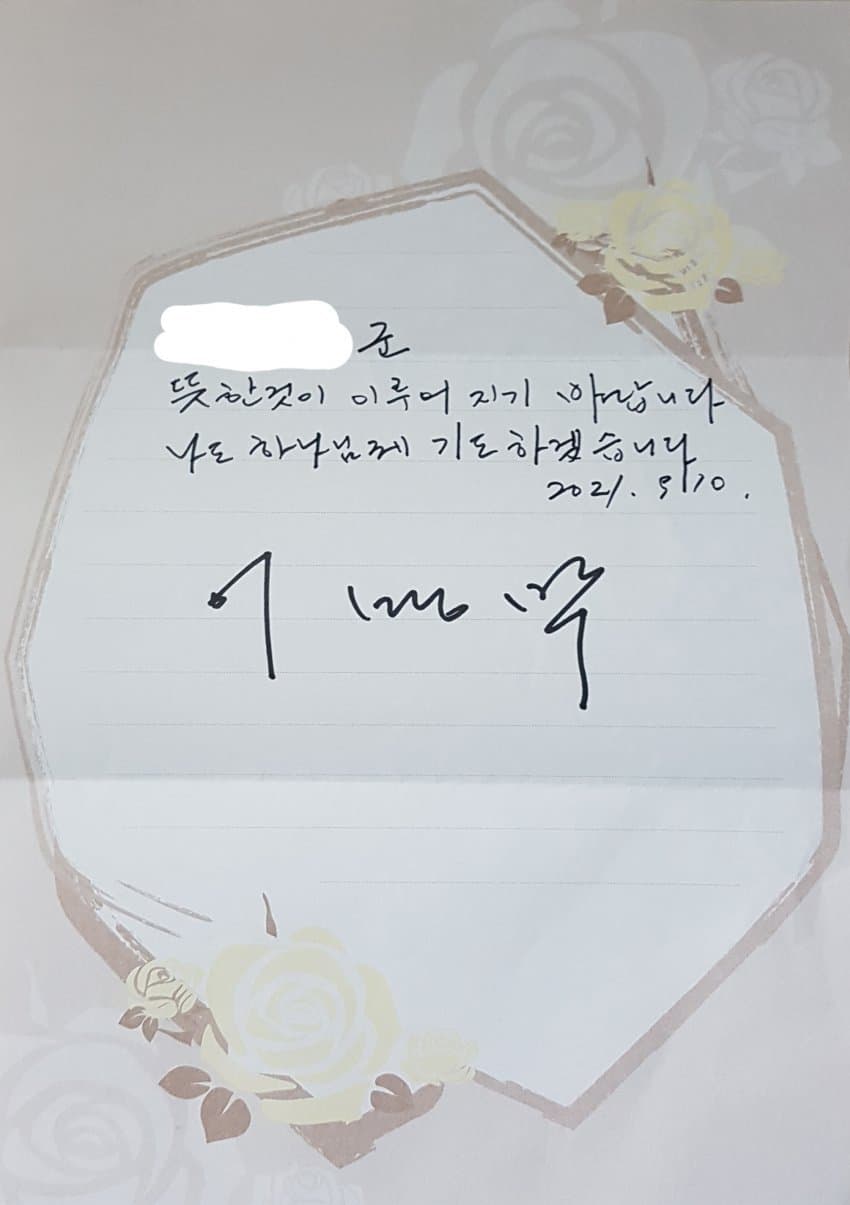 군
뜻한것이 이루어 지기 바랍니다
나도 하나님께 기도하겠습니다
2021. 9/10.
이명박